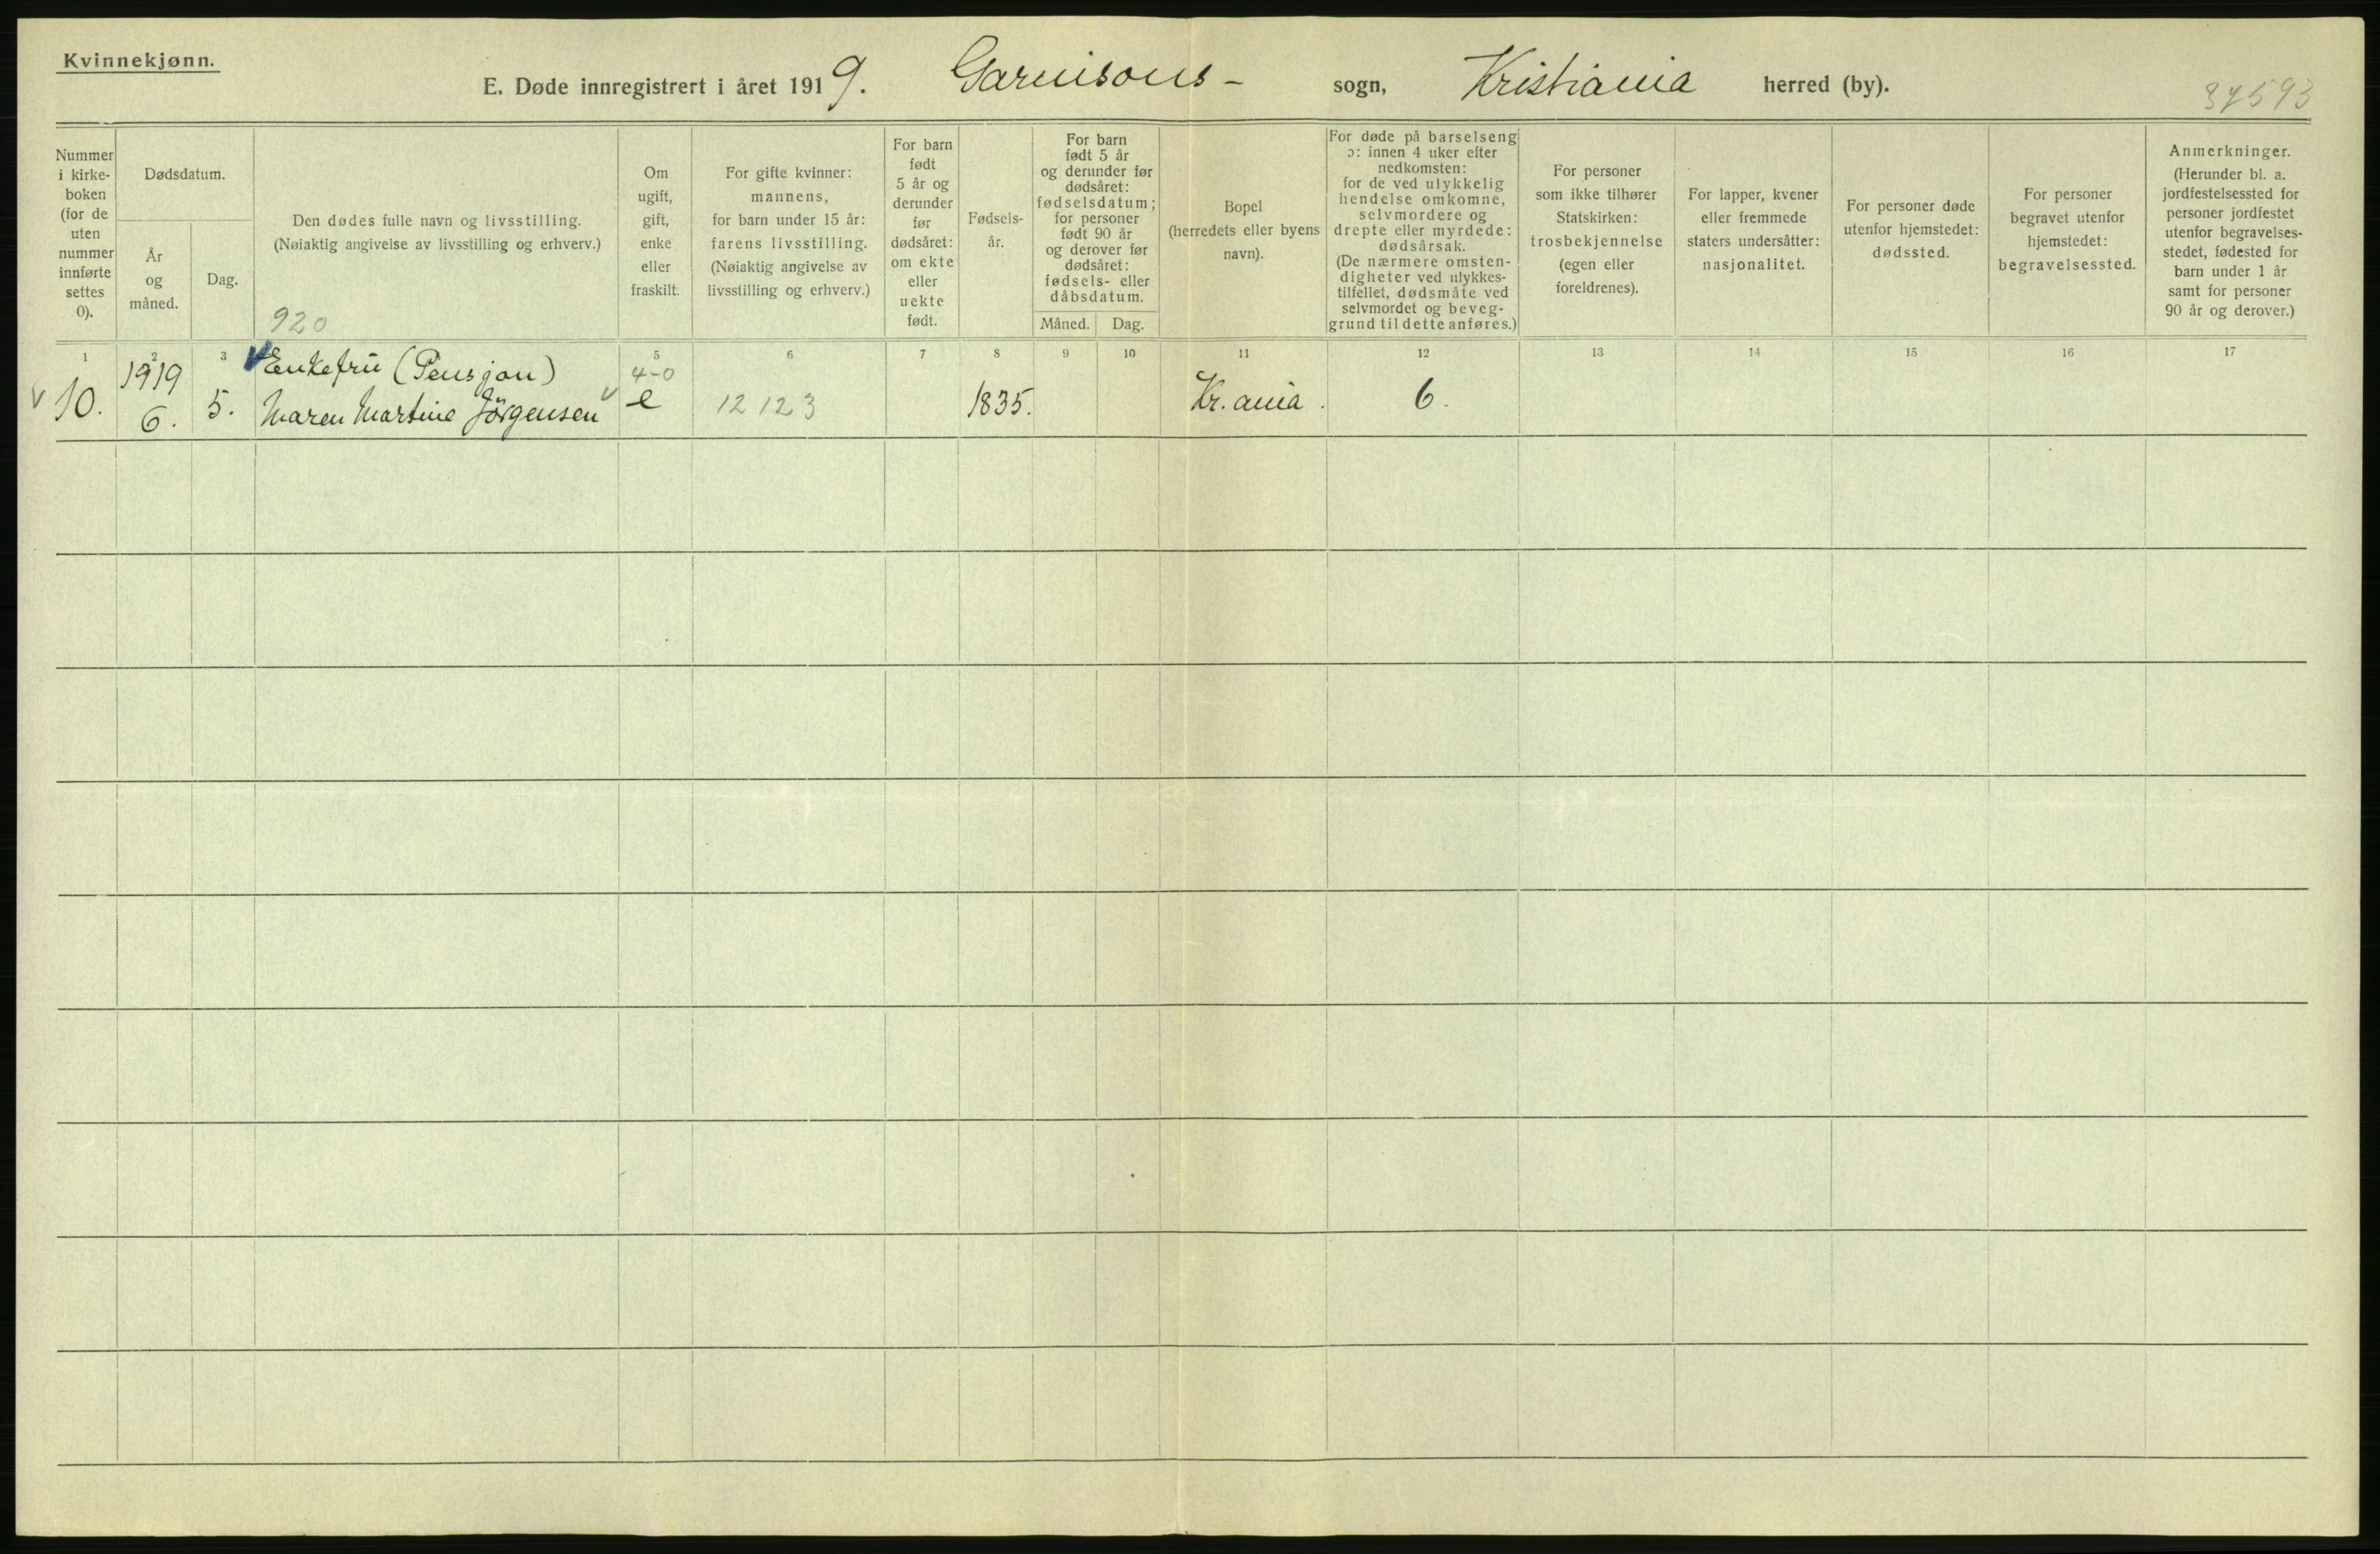 Kvinnekjønn.
E. Døde innregistrert i året 1919. Garnisons- sogn, Kristiania herred (by).
37593
Nummer
i kirke-
boken
(for de
uten
nummer
innførte
settes
0).
Dødsdatum.
År
og
måned.
Dag.
Den dødes fulle navn og livsstilling.
(Nøiaktig angivelse av livsstilling og erhverv.)
920
Om
ugift,
gift,
enke
eller
fraskilt.
For gifte kvinner:
mannens,
for barn under 15 år:
farens livsstilling.
(Nøiaktig angivelse av
livsstilling og erhverv.)
For barn
født
5 år og
derunder
før
dødsåret:
om ekte
eller
uekte
født.
Fødsels-
år.
For barn
født 5 år
og derunder før
dødsåret:
fødselsdatum;
for personer
født 90 år
og derover før
dødsåret:
fødsels- eller
dåbsdatum.
Måned. Dag.
Bopel
(herredets eller byens
navn).
For døde på barselseng
ɔ: innen 4 uker efter
nedkomsten:
for de ved ulykkelig
hendelse omkomne,
selvmordere og
drepte eller myrdede:
dødsårsak.
(De nærmere omsten-
digheter ved ulykkes-
tilfellet, dødsmåte ved
selvmordet og beveg-
grund til dette anføres.)
For personer
som ikke tilhører
Statskirken:
trosbekjennelse
(egen eller
foreldrenes).
For lapper, kvener
eller fremmede
staters undersåtter:
nasjonalitet.
For personer døde
utenfor hjemstedet:
dødssted.
For personer
begravet utenfor
hjemstedet:
begravelsessted.
Anmerkninger.
(Herunder bl. a.
jordfestelsessted for
personer jordfestet
utenfor begravelses-
stedet, fødested for
barn under 1 år
samt for personer
90 år og derover.)
1 2 3 5 6 7 8 9 10 11 12 13 14 15 16 17
1919 Enkefru (Pensjon) 4-0
10. 6. 5. Maren Martine Jörgensen e 12123 1835. Kr.ania. 6.